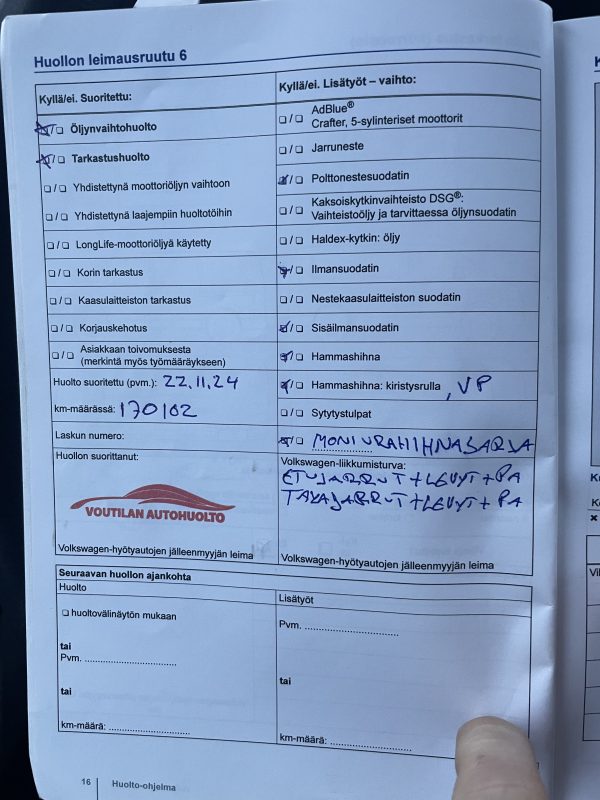 Huollon leimausruutu 6
Kyllä/ei. Suoritettu:
❏/❏ Öljynvaihtohuolto
❏/❏ Tarkastushuolto
❏/❏ Yhdistettynä moottoriöljyn vaihtoon
❏/❏ Yhdistettynä laajempiin huoltotöihin
❏/❏ LongLife-moottoriöljyä käytetty
❏/❏ Korin tarkastus
❏/❏ Kaasulaitteiston tarkastus
❏/❏ Korjauskehotus
❏/❏ Asiakkaan toivomuksesta
(merkintä myös työmääräykseen)
Huolto suoritettu (pvm.): 22.11.24
km-määrässä: 170102
Laskun numero:
Huollon suorittanut:
VOUTILAN AUTOHUOLTO
Volkswagen-hyötyautojen jälleenmyyjän leima
Kyllä/ei. Lisätyöt – vaihto:
❏/❏ AdBlue®
Crafter, 5-sylinteriset moottorit
❏/❏ Jarruneste
❏/❏ Polttonestesuodatin
❏/❏ Kaksoiskytkinvaihteisto DSG®:
Vaihteistoöljy ja tarvittaessa öljynsuodatin
❏/❏ Haldex-kytkin: öljy
❏/❏ Ilmansuodatin
❏/❏ Nestekaasulaitteiston suodatin
❏/❏ Sisäilmansuodatin
❏/❏ Hammashihna
❏/❏ Hammashihna: kiristysrulla , VP
❏/❏ Sytytystulpat
❏/❏ MONIURAHIHNASARJA
Volkswagen-liikkumisturva:
ETUJARRUT+LEVYT+PA
TAKAJARRUT+LEVYT+PA
Volkswagen-hyötyautojen jälleenmyyjän leima
Seuraavan huollon ajankohta
Huolto
❏ huoltovälinäytön mukaan
tai
Pvm. ............................
tai
km-määrä: ............................
Lisätyöt
Pvm. ............................
tai
km-määrä: ............................
16 Huolto-ohjelma